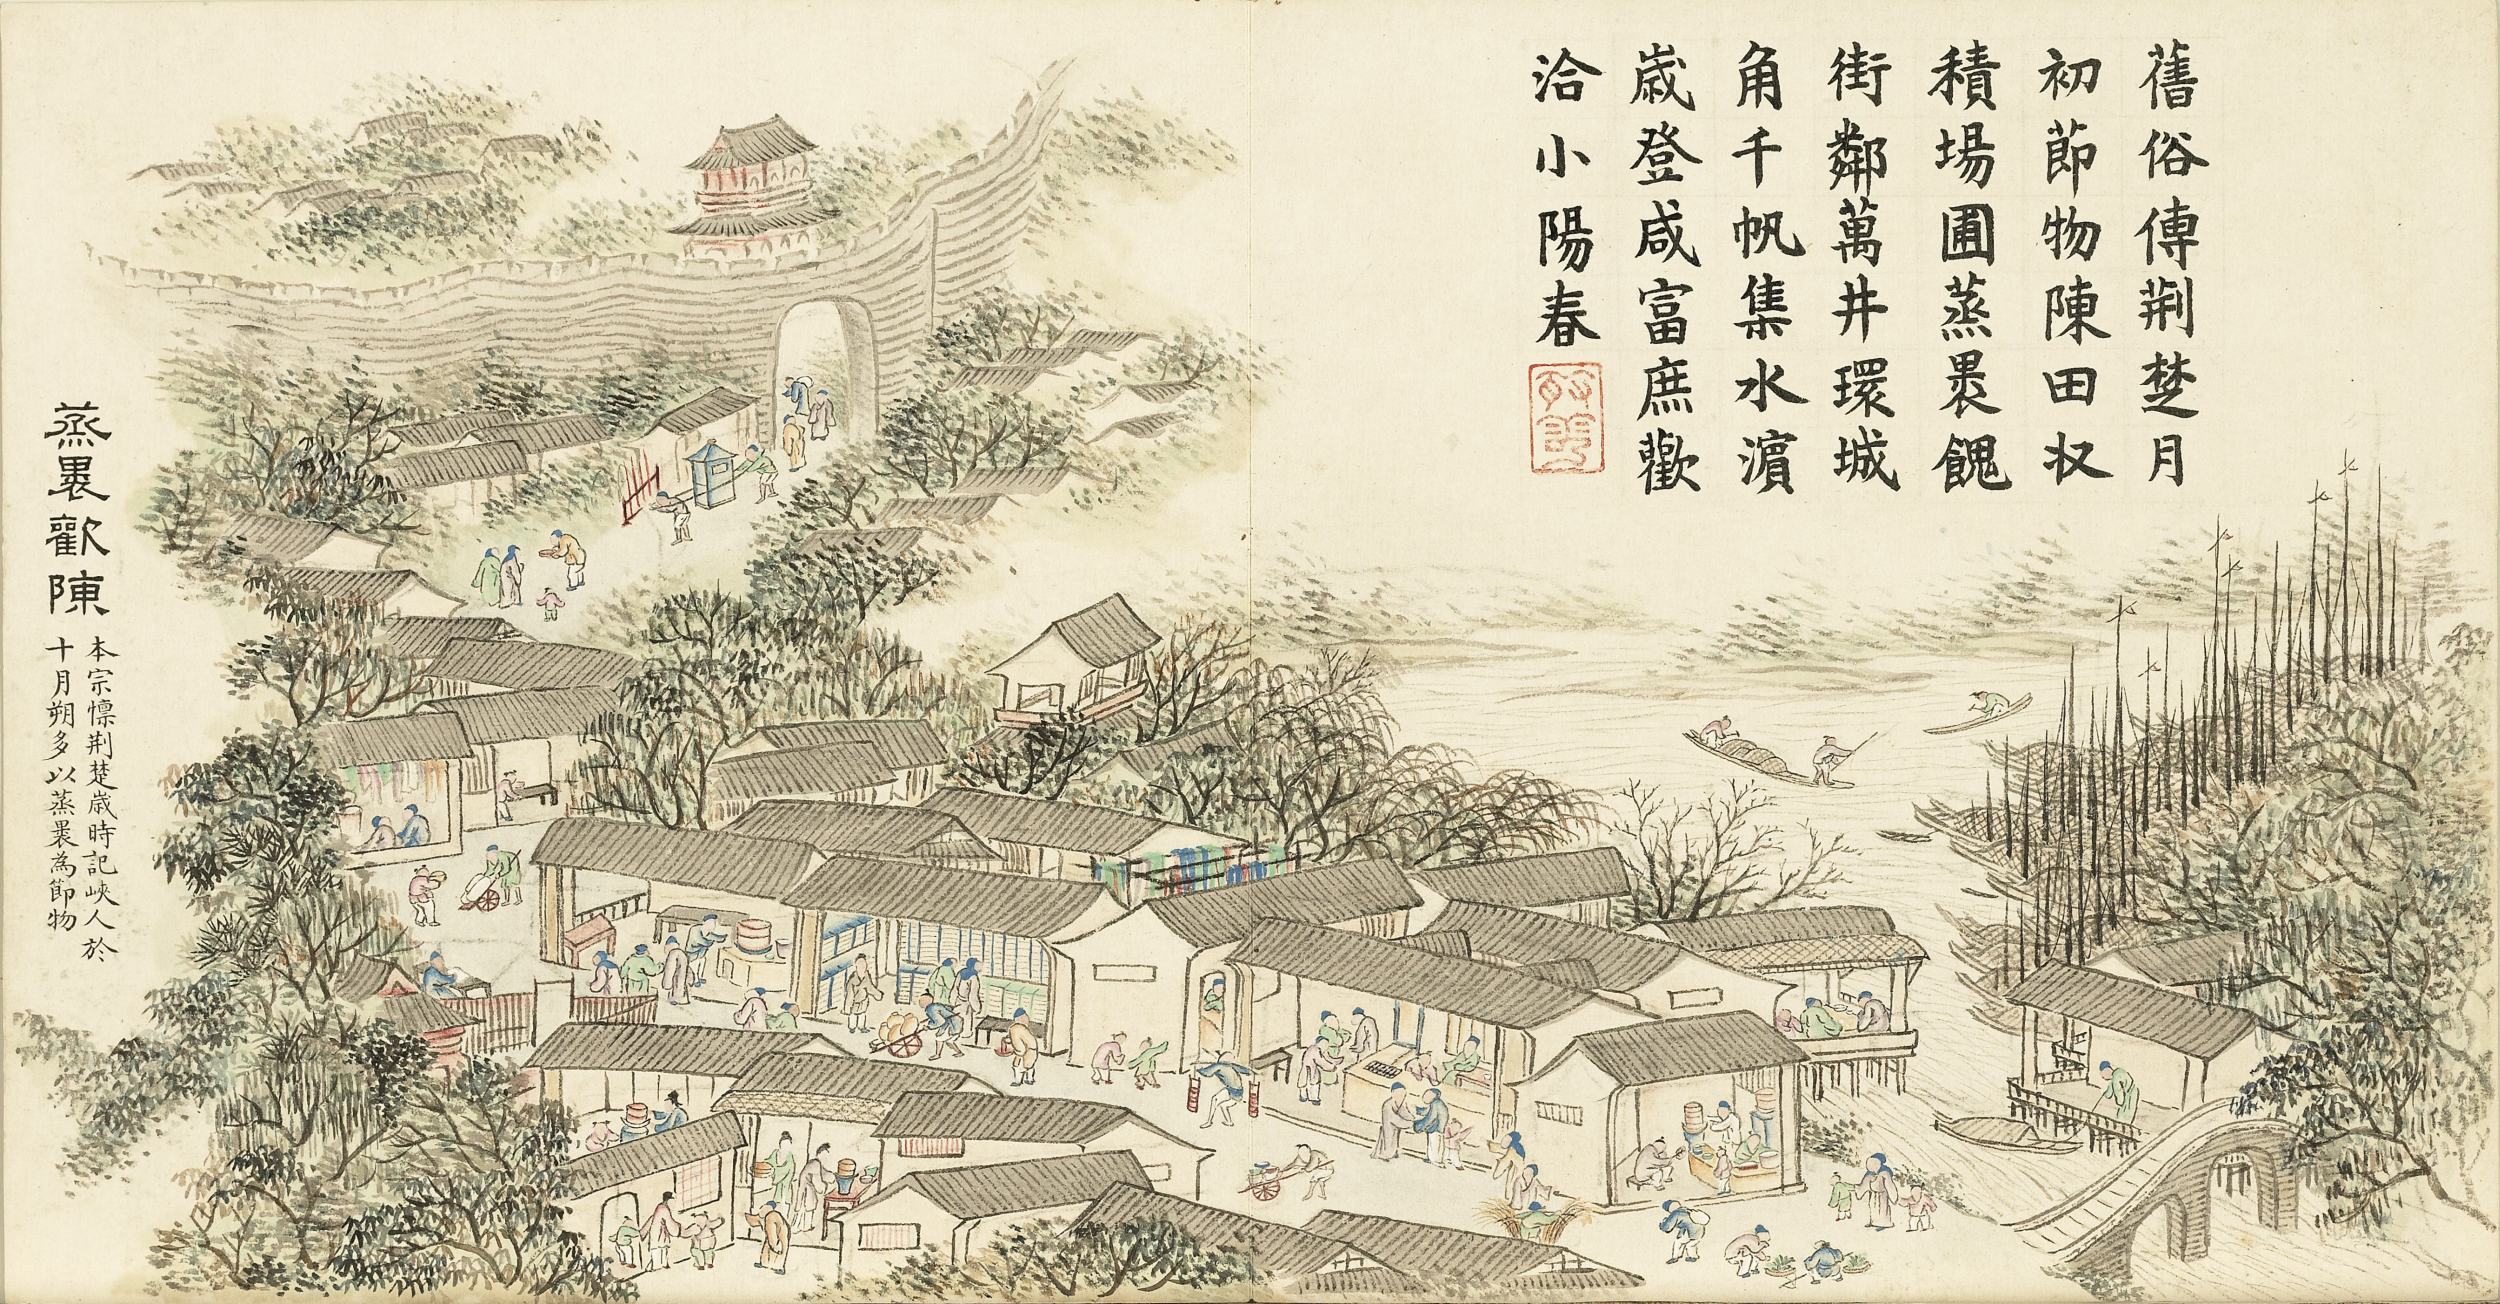 舊俗傳荆楚月
初節物陳田収
積場圃蒸裹餽
街鄰萬井環城
角千帆集水濵
歲登咸富庶歡
洽小陽春
蒸裹歡陳
本宗懍荆楚歲時記峽人於
十月朔多以蒸裹為節物